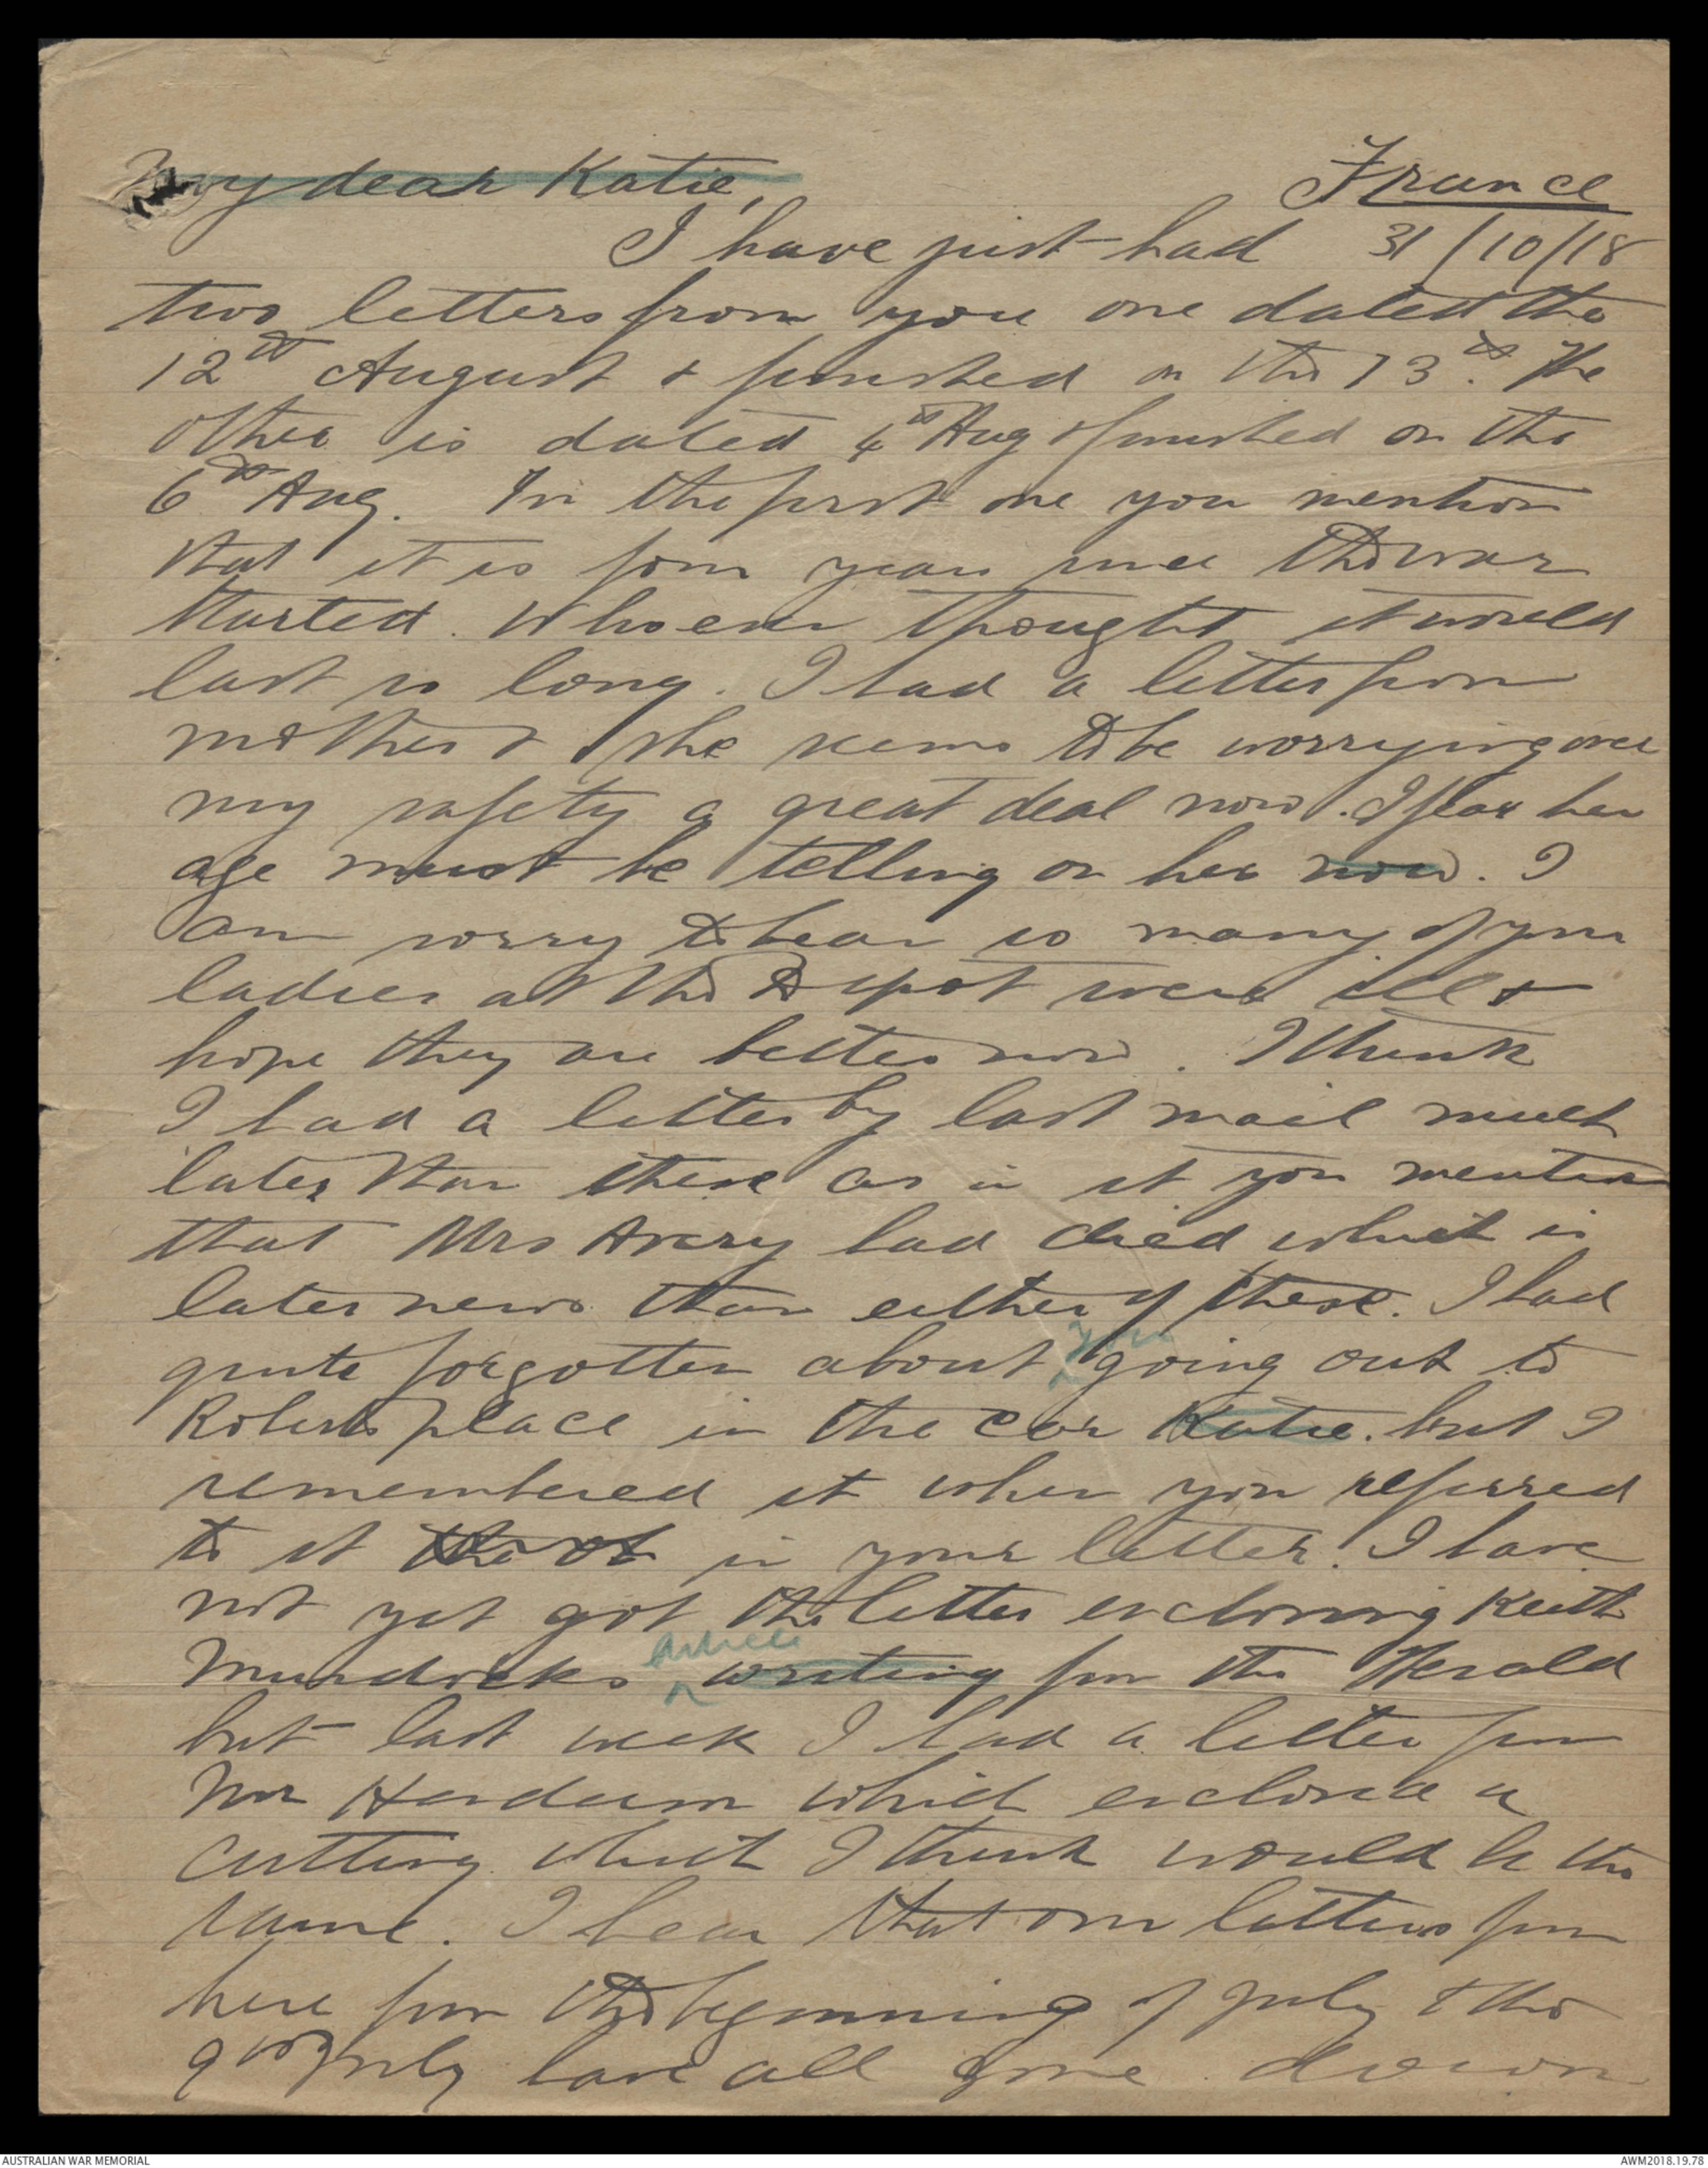 My dear Katie,
France
I have just had 31/10/18
two letters from you one dated the
12th August & finished on the 13th. The
other is dated 4th Aug & finished on the
6th Aug. In the first one you mention
that it is four years since the war
started. Whoever thought it would
last so long. I had a letter from
mother & she seems to be worrying over
my safety a great deal now. I fear her
age must be telling on her now. I
am sorry to hear so many of your
ladies at the Depot were ill &
hope they are better now. I think
I had a letter by last mail much
later than these as in it you mention
that Mrs Avery had died which is
later news than either of these. I had
you
quite forgotten about going out to
Roberts place in the car Katie. but I
remembered it when you referred
to it in your letter. I have
not yet got the letter enclosing Keith
Article
Murdocks writing from the Herald
but last week I had a letter from
Mr which enclosed a
cutting which I think would be the
same. I hear that our letters from
here from the beginning of July & the
9th July have all gone down
AUSTRALIAN WAR MEMORIAL
AWM2018.19.78